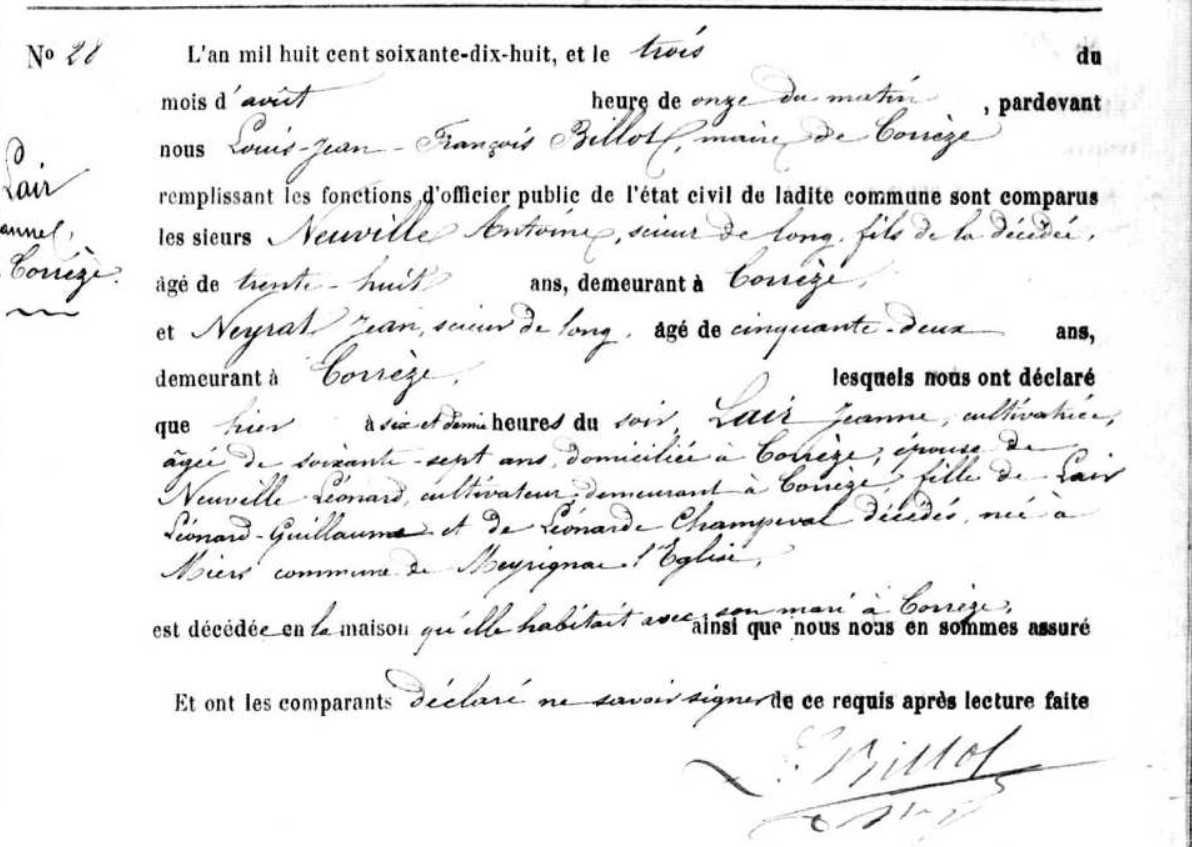 No 28
L'an mil huit cent soixante-dix-huit, et le trois du
mois d'août heure de onze du matin, pardevant
nous Louis-Jean-François Billot, maire de Corrèze
Lair
remplissant les fonctions d'officier public de l'état civil de ladite commune sont comparus
annel,
les sieurs Neuville Antoine, scieur de long, fils de la décédée,
Corrèze.
âgé de trente-huit ans, demeurant à Corrèze,
et Neyrat Jean, scieur de long, âgé de cinquante-deux ans,
demeurant à Corrèze, lesquels nous ont déclaré
que hier à six et demie heures du soir, Lair Jeanne, cultivatrice,
âgée de soixante-sept ans, domiciliée à Corrèze, épouse de
Neuville Léonard, cultivateur, demeurant à Corrèze, fille de Lair
Léonard-Guillaume et de Léonarde Champeval décédés, née à
Miers commune de Meyrignac l'Eglise,
est décédée en la maison qu'elle habitait avec son mari à Corrèze, ainsi que nous nous en sommes assuré
Et ont les comparants déclaré ne savoir signer de ce requis après lecture faite
Billot